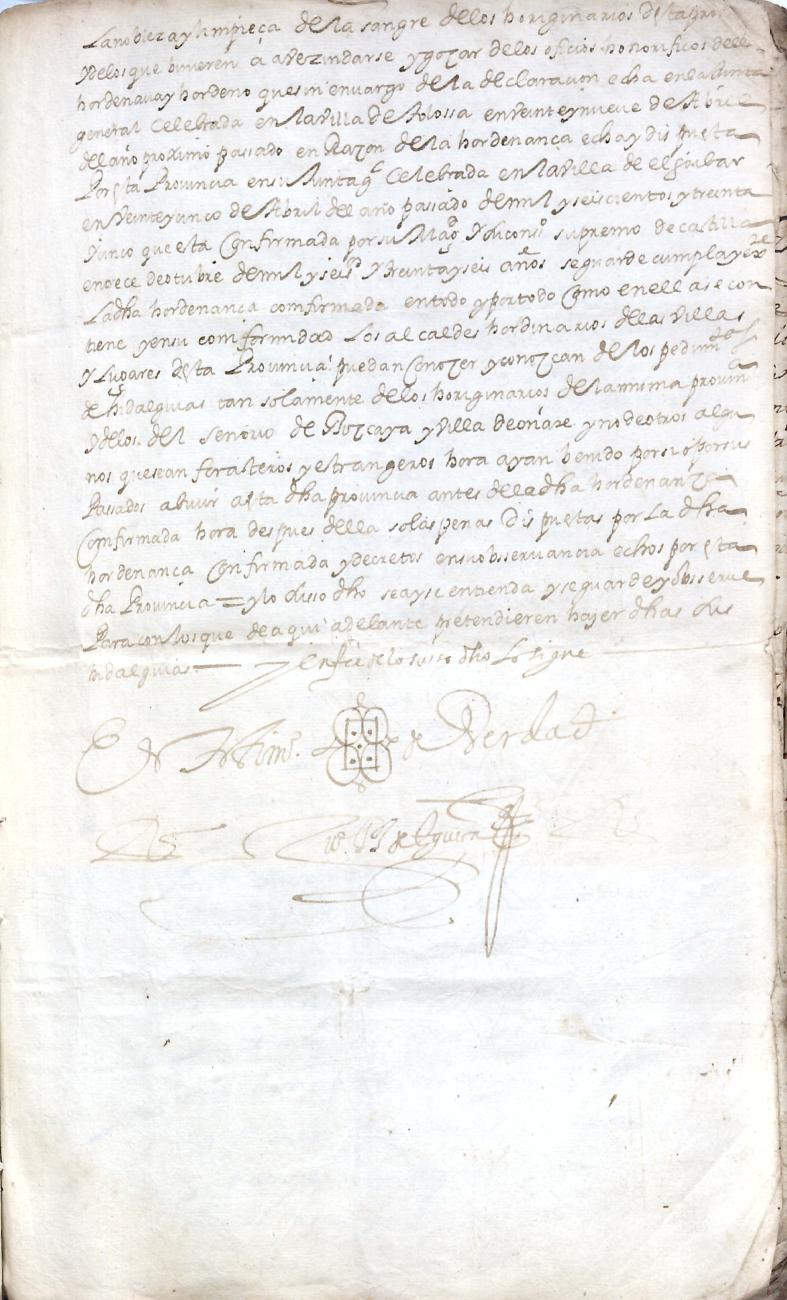 La nobleza y limpieça de la sangre de los horiginarios desta pro
y de los que binieren a avezindarse y gozar de los oficios honorificos della
hordenava y hordeno que sin envargo de la declaracion echa en la Junta
general Celebrada en la villa de Tolossa en veinte y nueve de Abril
del año proximo passado en Razon de la hordenança echa y dispuesta
Por esta Provincia en su Junta gl Celebrada en la villa de elgoibar
en Veinte y cinco de Abril del año passado de mil y seiscientos y treinta
y cinco que esta Confirmada por su Magd y su conso supremo de castilla
en oece de otubre de mil y seisos y treinta y seis años se guarde cumpla y exe
La dha hordenanca comfirmada en todo y por todo Como en ella se con
tiene y en su comformidad Los alcaldes hordinarios de las villas
y Lugares desta Provincia puedan Conozer y conozcan de los pedimtos
de hidalguias tan solamente de los horiginarios de la misma provina
y de los del senorio de Vizcaya y villa de oñate y no de otros algu
nos que sean forasteros y estrangeros hora ayan benido por si o por sus
Passados a bivir a esta dha provincia antes de la dha hordenanza
Confirmada hora despues della so las penas Dispuestas por La dha
hordenança Confirmada y decretos en su observancia echos por esta
dha Provincia = y lo suso dho sea y se entienda y se guarde y observe
Para con los que de aqui adelante pretendieren hazer dhas sus
hidalguias — y en fee de lo susso dho Lo signe
En testimo de Verdad